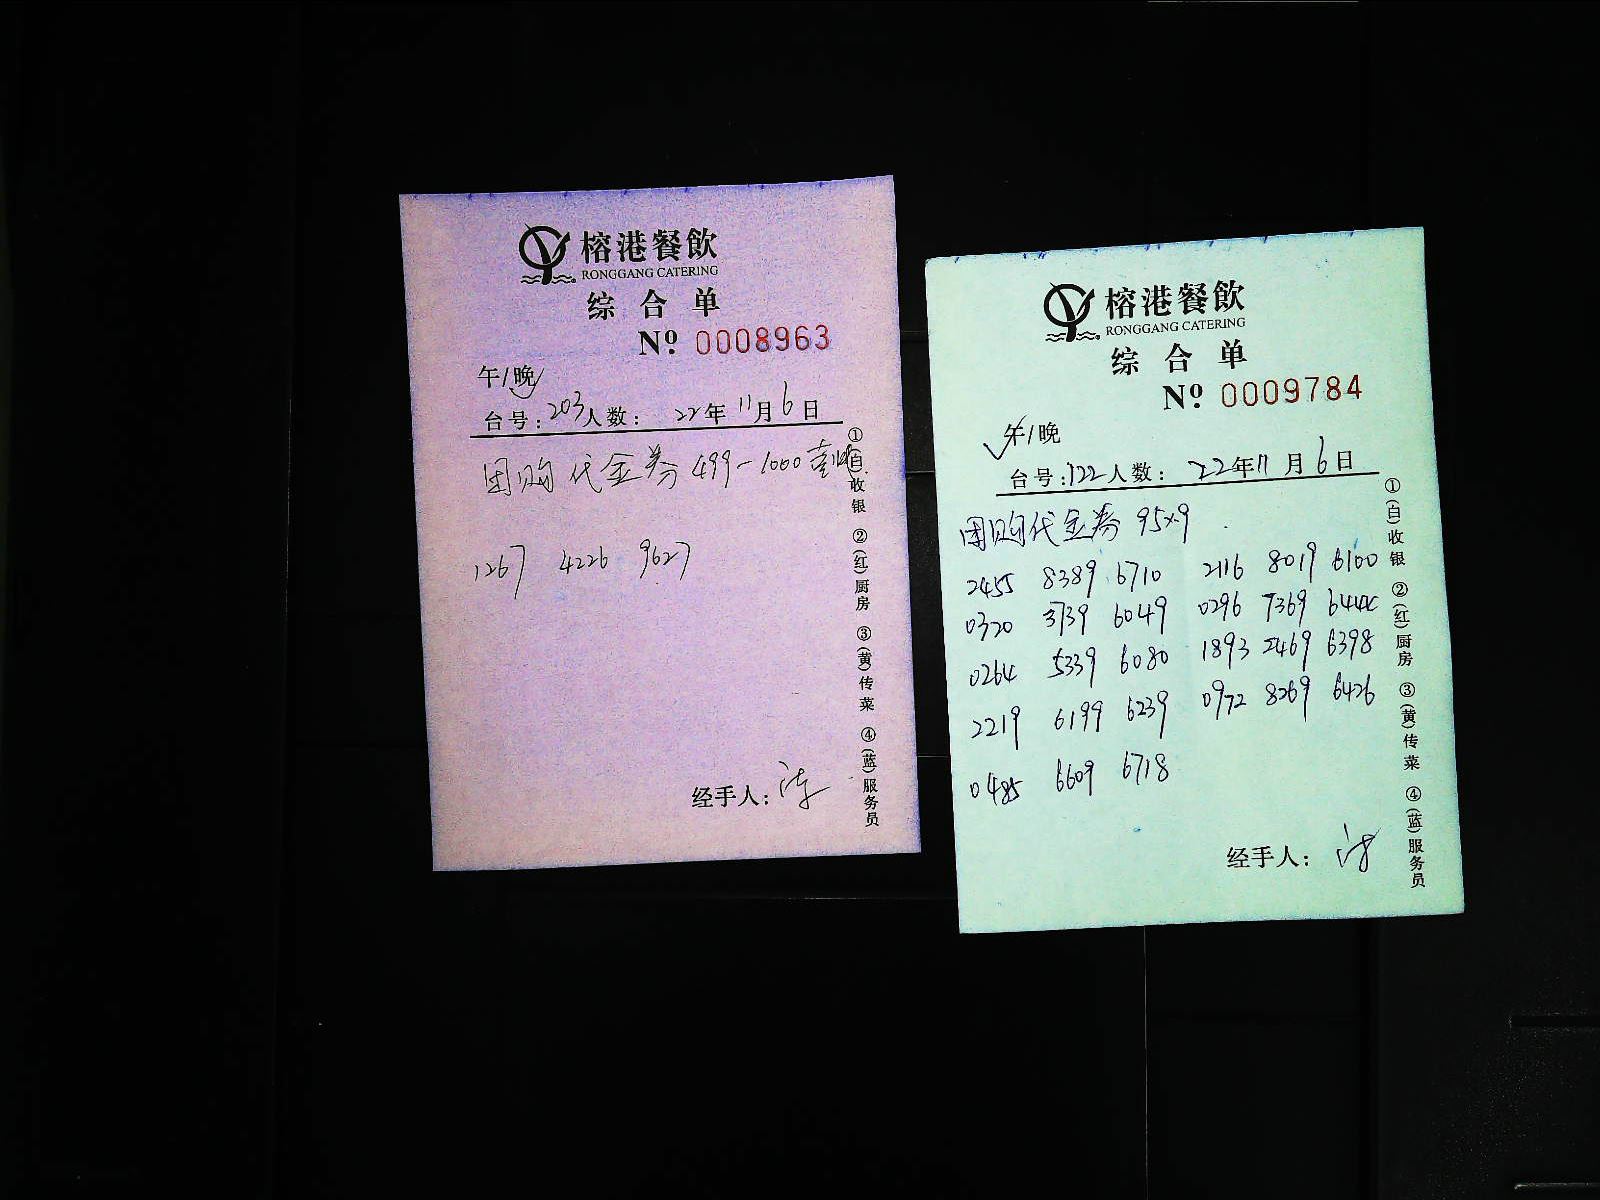 榕港餐飲
RONGGANG CATERING
综合单
Nº 0008963
午/晚
台号:203人数: 22年11月6日
团购代金券 499-1000
1267 4226 9627
经手人:
①(白)收银 ②(红)厨房 ③(黄)传菜 ④(蓝)服务员
榕港餐飲
RONGGANG CATERING
综合单
Nº 0009784
午/晚
台号:122人数: 22年11月6日
团购代金券 95x9
2455 8389 6710 2116 8019 6100
0320 3739 6049 0296 7369
0264 5339 6080 1893 2469 6398
2219 6199 6239 0972 8269 6426
0485 6609 6718
经手人:
①(白)收银 ②(红)厨房 ③(黄)传菜 ④(蓝)服务员